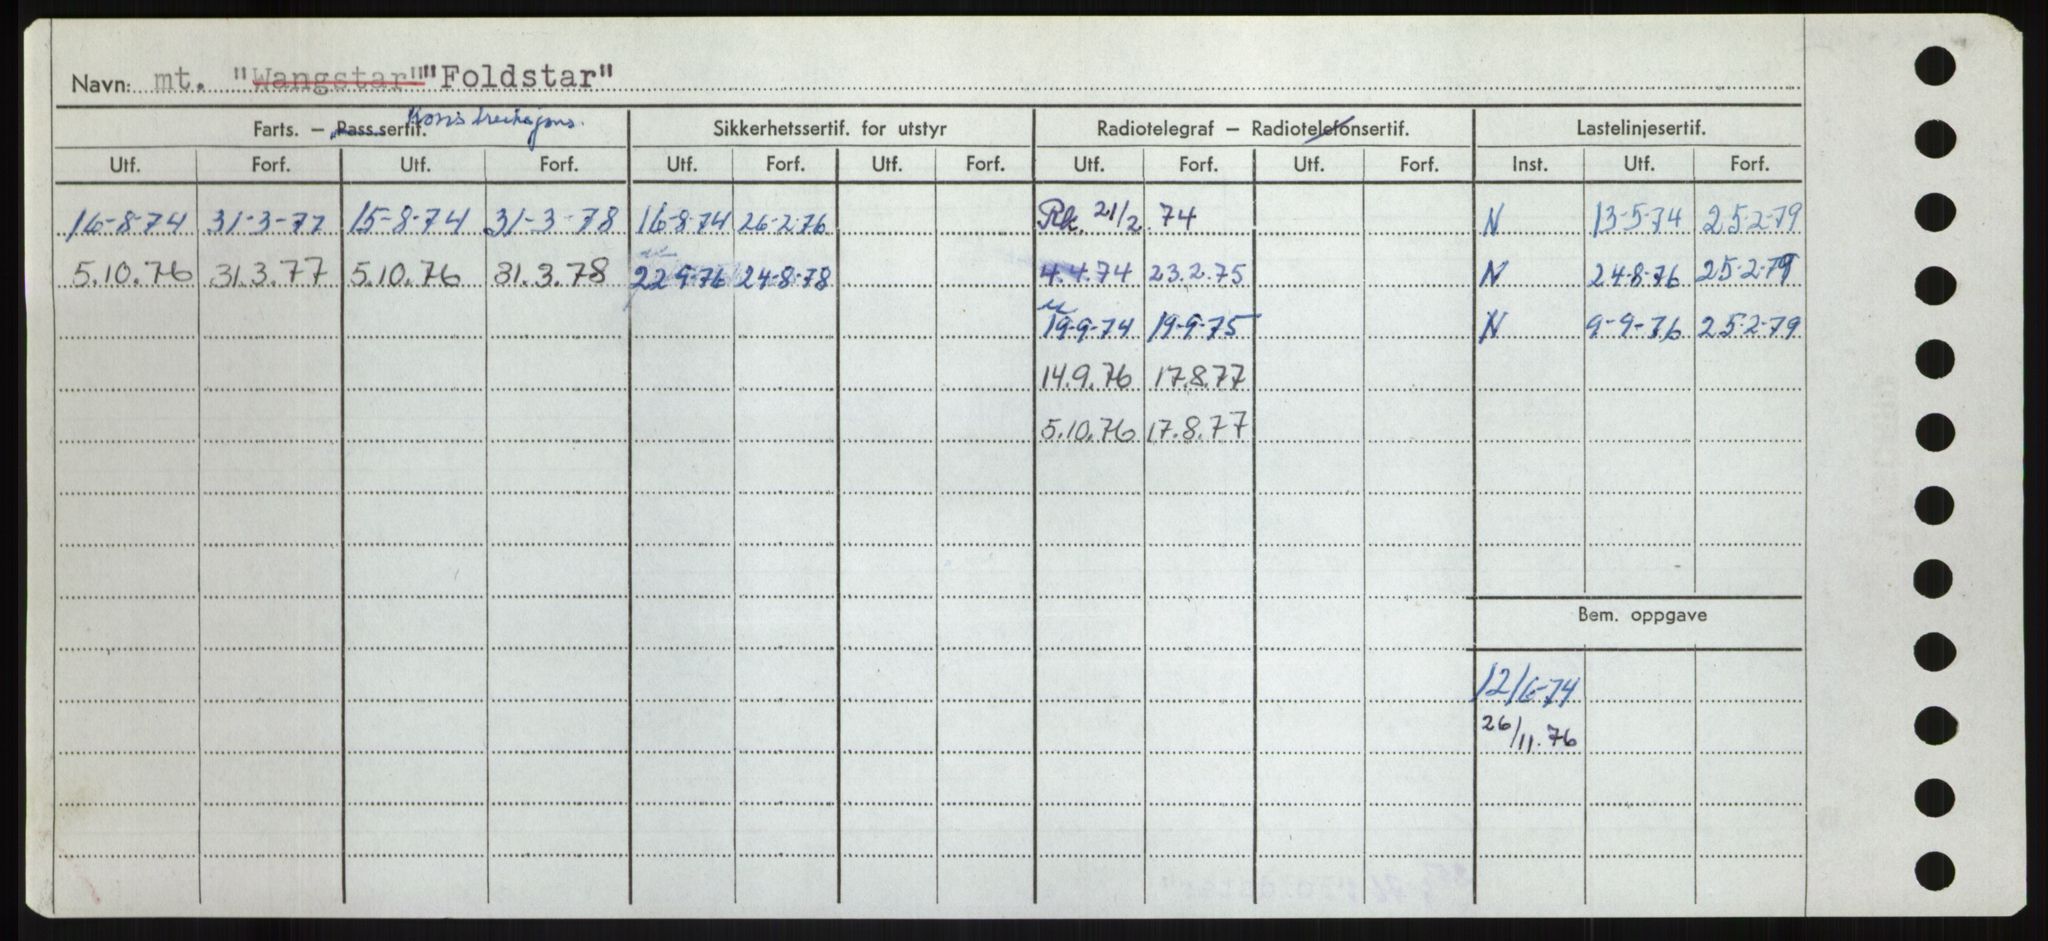 Navn: mt. "Wangstar" "Foldstar"
Konstruksjons.
Farts. – Pass.sertif. Sikkerhetssertif. for utstyr Radiotelegraf – Radiotelefonsertif. Lastelinjesertif.
Utf. Forf. Utf. Forf. Utf. Forf. Utf. Forf. Utf. Forf. Utf. Forf. Inst. Utf. Forf.
16-8-74 31-3-77 15-8-74 31-3-78 16-8-74 26-2-76 Rk. 21/2.74 N 13-5-74 25-2-79
5.10.76 31.3.77 5.10.76 31.3.78 22-9-76 24-8-78 4.4.74 23.2.75 N 24-8-76 25-2-79
19-9-74 19-9-75 N 9-9-76 25-2-79
14.9.76 17.8.77
5.10.76 17.8.77
Bem. oppgave
12/6-74
26/11.76